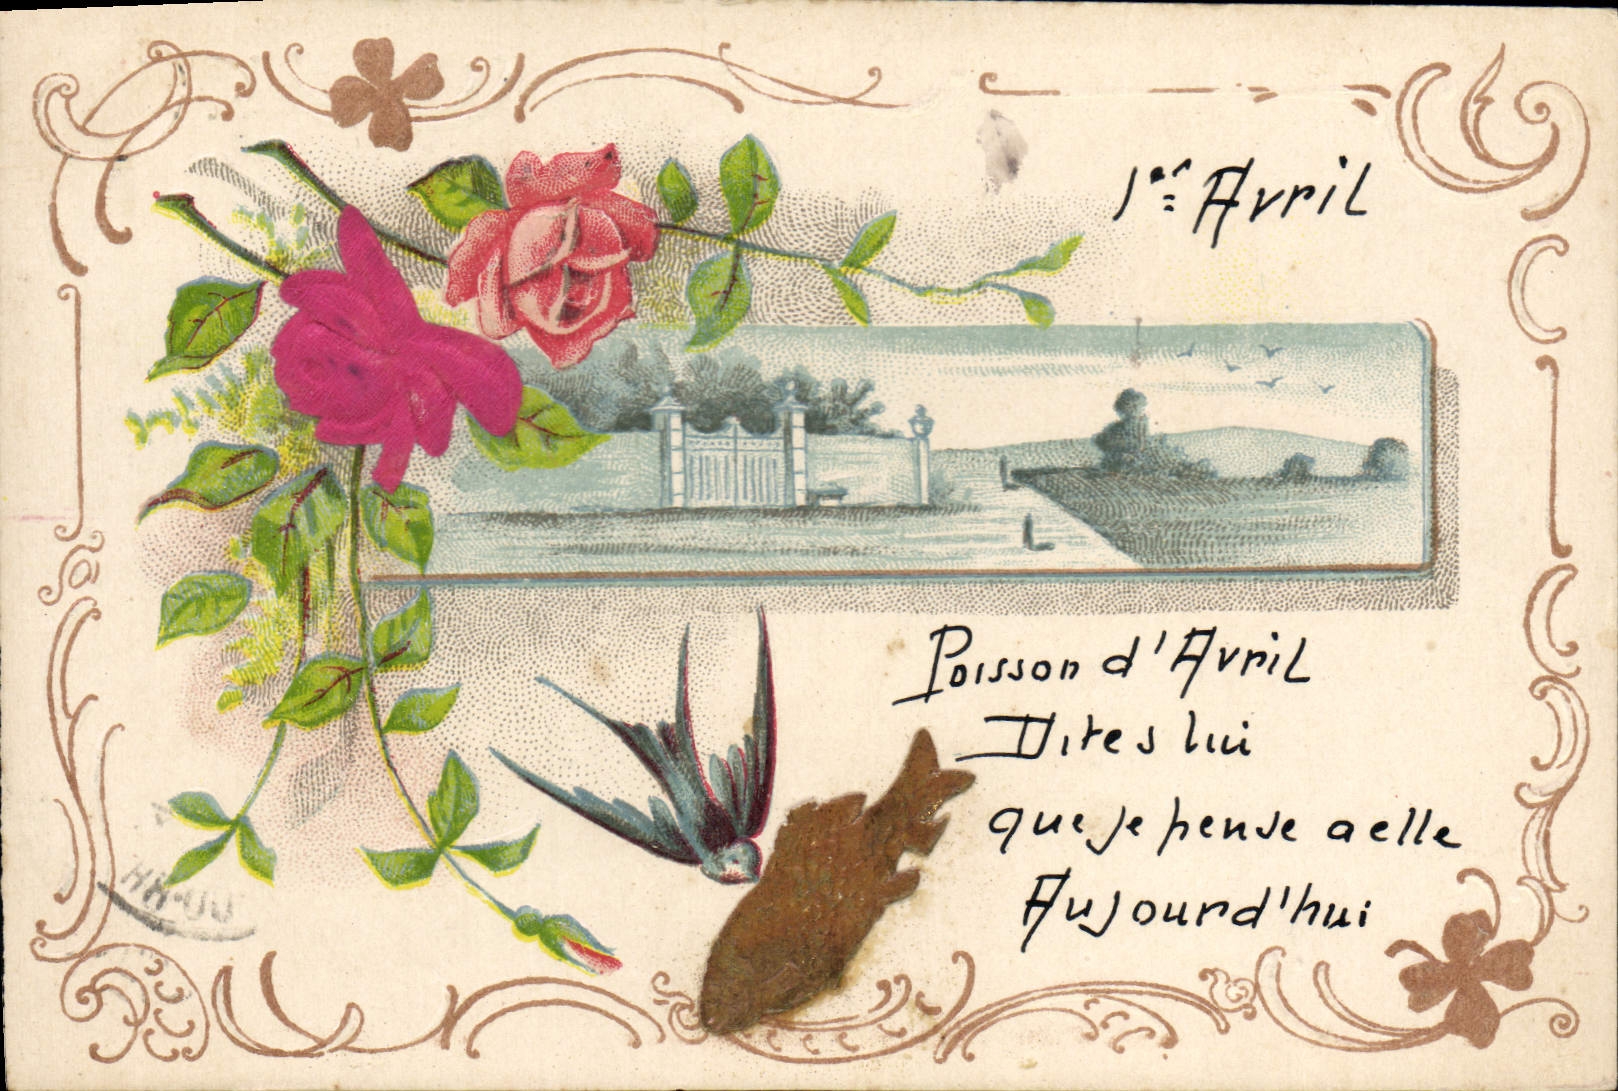 1er Avril
Poisson d'Avril
Dites lui
que je pense a elle
Aujourd'hui